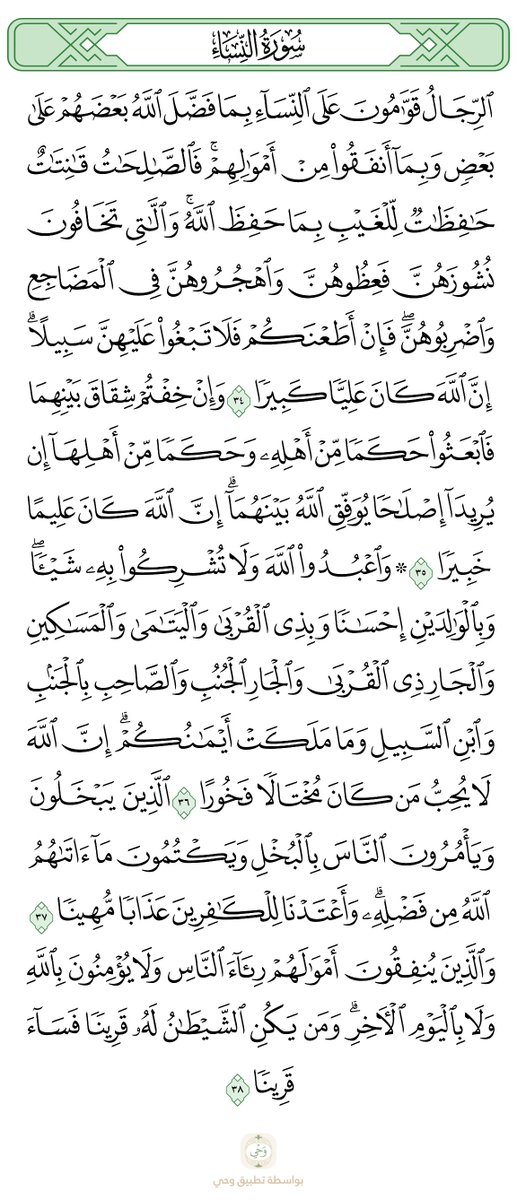 سُورَةُ النِّسَاءِ
ٱلرِّجَالُ قَوَّٰمُونَ عَلَى ٱلنِّسَآءِ بِمَا فَضَّلَ ٱللَّهُ بَعۡضَهُمۡ عَلَىٰ
بَعۡضٖ وَبِمَآ أَنفَقُواْ مِنۡ أَمۡوَٰلِهِمۡۚ فَٱلصَّٰلِحَٰتُ قَٰنِتَٰتٌ
حَٰفِظَٰتٞ لِّلۡغَيۡبِ بِمَا حَفِظَ ٱللَّهُۚ وَٱلَّٰتِي تَخَافُونَ
نُشُوزَهُنَّ فَعِظُوهُنَّ وَٱهۡجُرُوهُنَّ فِي ٱلۡمَضَاجِعِ
وَٱضۡرِبُوهُنَّۖ فَإِنۡ أَطَعۡنَكُمۡ فَلَا تَبۡغُواْ عَلَيۡهِنَّ سَبِيلًاۗ
إِنَّ ٱللَّهَ كَانَ عَلِيّٗا كَبِيرٗا ٣٤ وَإِنۡ خِفۡتُمۡ شِقَاقَ بَيۡنِهِمَا
فَٱبۡعَثُواْ حَكَمٗا مِّنۡ أَهۡلِهِۦ وَحَكَمٗا مِّنۡ أَهۡلِهَآ إِن
يُرِيدَآ إِصۡلَٰحٗا يُوَفِّقِ ٱللَّهُ بَيۡنَهُمَآۗ إِنَّ ٱللَّهَ كَانَ عَلِيمًا
خَبِيرٗا ٣٥ ۞ وَٱعۡبُدُواْ ٱللَّهَ وَلَا تُشۡرِكُواْ بِهِۦ شَيۡـٔٗاۖ
وَبِٱلۡوَٰلِدَيۡنِ إِحۡسَٰنٗا وَبِذِي ٱلۡقُرۡبَىٰ وَٱلۡيَتَٰمَىٰ وَٱلۡمَسَٰكِينِ
وَٱلۡجَارِ ذِي ٱلۡقُرۡبَىٰ وَٱلۡجَارِ ٱلۡجُنُبِ وَٱلصَّاحِبِ بِٱلۡجَنۢبِ
وَٱبۡنِ ٱلسَّبِيلِ وَمَا مَلَكَتۡ أَيۡمَٰنُكُمۡۗ إِنَّ ٱللَّهَ
لَا يُحِبُّ مَن كَانَ مُخۡتَالٗا فَخُورًا ٣٦ ٱلَّذِينَ يَبۡخَلُونَ
وَيَأۡمُرُونَ ٱلنَّاسَ بِٱلۡبُخۡلِ وَيَكۡتُمُونَ مَآ ءَاتَىٰهُمُ
ٱللَّهُ مِن فَضۡلِهِۦۗ وَأَعۡتَدۡنَا لِلۡكَٰفِرِينَ عَذَابٗا مُّهِينٗا ٣٧
وَٱلَّذِينَ يُنفِقُونَ أَمۡوَٰلَهُمۡ رِئَآءَ ٱلنَّاسِ وَلَا يُؤۡمِنُونَ بِٱللَّهِ
وَلَا بِٱلۡيَوۡمِ ٱلۡأٓخِرِۗ وَمَن يَكُنِ ٱلشَّيۡطَٰنُ لَهُۥ قَرِينٗا فَسَآءَ
قَرِينٗا ٣٨
وَحْي
بواسطة تطبيق وحي